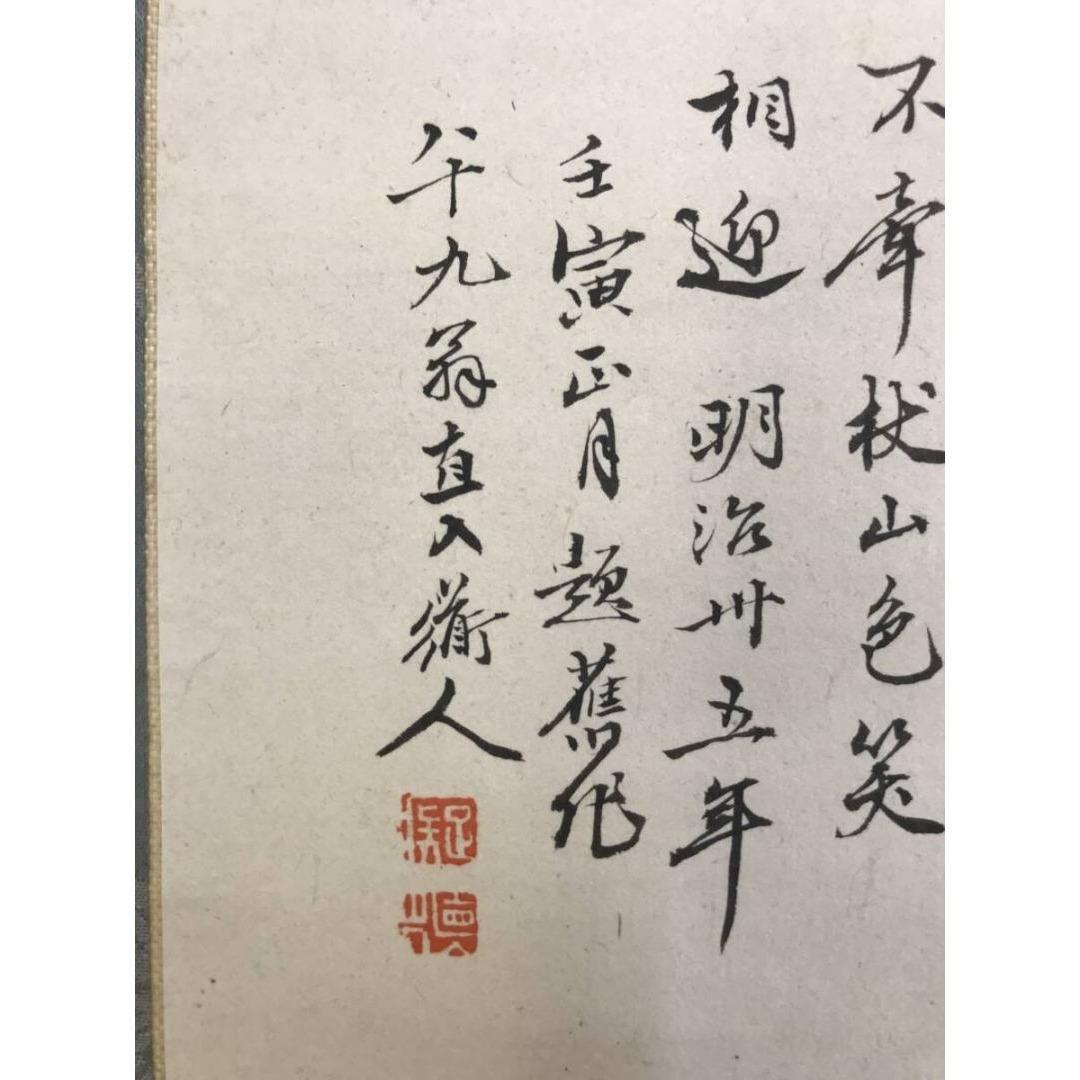 不牽杖山色笑
相迎 明治卅五年
壬寅正月題舊作
八十九翁直入衜人